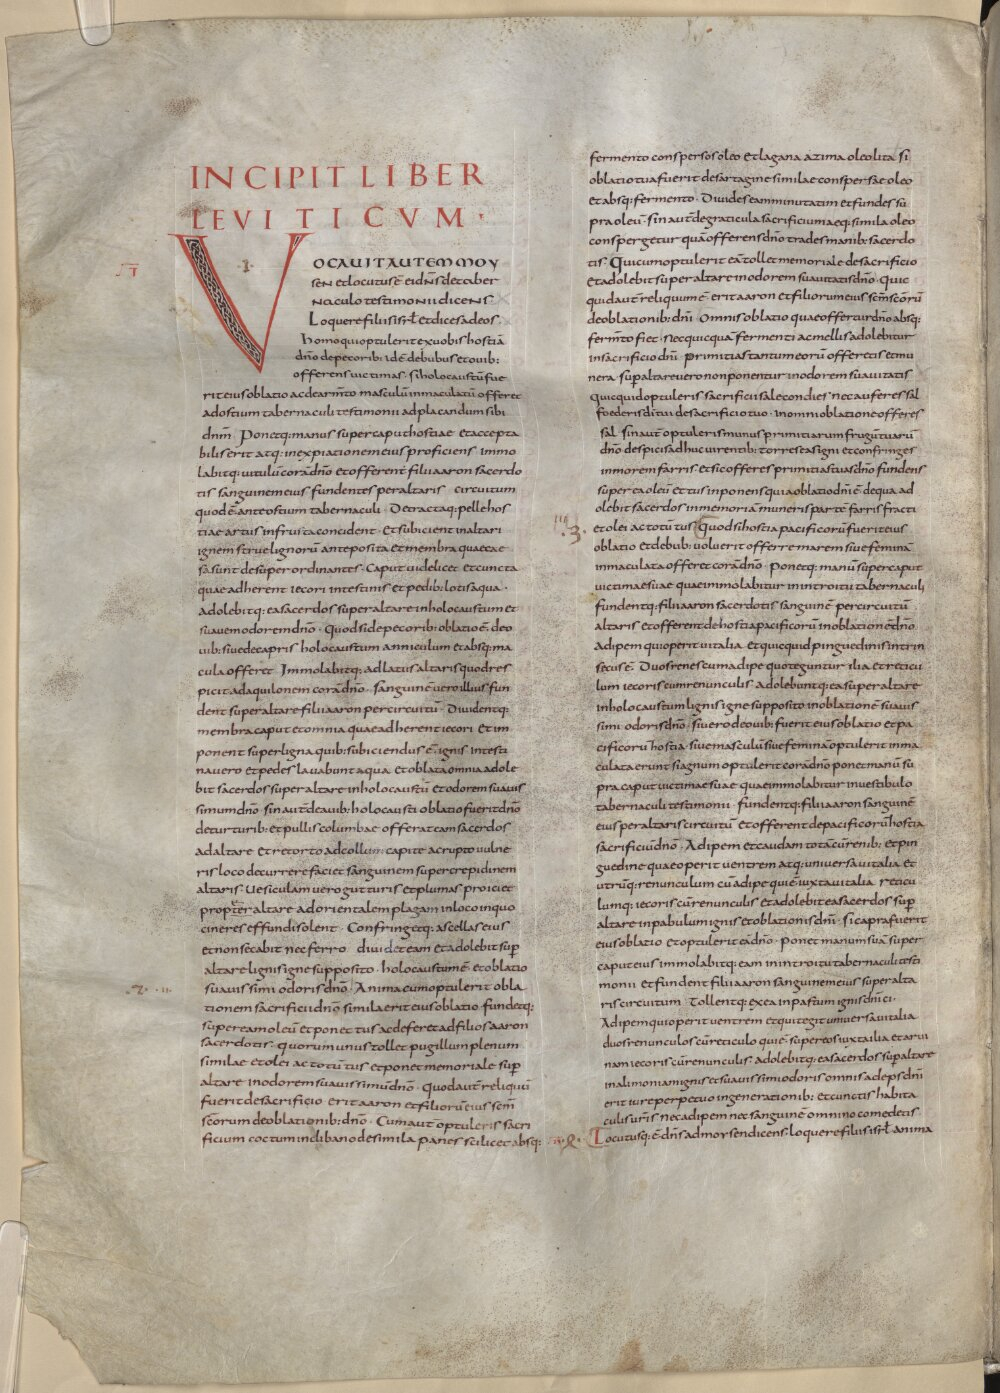 INCIPIT LIBER
LEVITICVM
·I·
VOCAUIT AUTEM MOY
SEN et locutus ÷ ei dn̄s de taber
naculo testimonii dicens
Loquere filiis isrł et dices ad eos.
homo qui optulerit ex uobis hostiā
dn̄o de pecorib; id ÷ de bubus et ouib;
offerens uictimas. si holocaustū fue
rit eius oblatio ac de arm̄to masculū inmaculatū offeret
ad ostium tabernaculi testimonii ad placandum sibi
dn̄m. Ponetq; manus super caput hostiae et accepta
bilis erit atq; in expiationem eius proficiens. immo
labitq; uitulū corā dn̄o et offerent filii aaron sacerdo
tis sanguinem eius fundentes per altaris circuitum
quod ē ante ostium tabernaculi. Detractaq; pelle hos
tiae artus in frusta concident. Et subicient in altari
ignem strue lignorū ante posita et membra quae cae
sa sunt desuper ordinantes. Caput uidelicet et cuncta
quae adherent iecori intestinis et pedib; lotis aqua.
Adolebitq; ea sacerdos super altare in holocaustum et
suauem odorem dn̄o. Quod si de pecorib; oblatio ē. de o
uib; siue de capris holocaustum anniculum et absq; ma
cula offeret. Immolabitq; ad latus altaris quod res
picit ad aquilonem corā dn̄o. sanguinē uero illius fun
dent super altare filii aaron per circuitū. Diuidentq;
membra caput et omnia quae adherent iecori. Et im
ponent super ligna quib; subiciendus ē ignis. intesti
na uero et pedes lauabunt aqua. Et oblata omnia adole
bit sacerdos super altare in holocaustū et odorem suauis
simum dn̄o. sin aut̄ de auib; holocausti oblatio fuerit dn̄o
de turturib; et pullis columbae. offerat eam sacerdos
ad altare. Et retorto ad collum capite ac rupto uulne
ris loco decurrere faciet sanguinem super crepidinem
altaris. Uesiculam uero gutturis et plumas proiciet
propter altare ad orientalem plagam in loco in quo
cineres effundi solent. Confringetq; ascellas eius
et non secabit nec ferro diuidet eam et adolebit sup̄
altare lignis igne supposito. holocaustum ē. et oblatio
·2· suauissimi odoris dn̄o. Anima cum optulerit obla
tionem sacrificii dn̄o simila erit eius oblatio. fundetq;
super eam oleū et ponet tus ac deferet ad filios aaron
sacerdotis. quorum unus tollet pugillum plenum
similae et olei ac totū tus et ponet memoriale sup̄
altare in odorem suauissimū dn̄o. Quod aut̄ reliquū
fuerit de sacrificio. erit aaron et filiorū eius scm̄
scōrum de oblationib; dn̄o. Cum aut̄ optuleris sacri
ficium coctum in clibano de simila panes scilicet absq;
fermento conspersos oleo et lagana azima oleo lita. si
oblatio tua fuerit de sartagine similae conspersae oleo
et absq; fermento. Diuides eam minutatim et fundes su
pra oleū. sin aut̄ de graticula sacrificium aeq; simila oleo
conspergetur quā offerens dn̄o trades manib; sacerdo
tis. Qui cum optulerit eā tollet memoriale de sacrificio
et adolebit super altare in odorem suauitatis dn̄o. Quic
quid aut̄ reliquum ē erit aaron et filiorum eius scm̄ scōrū
de oblationib; dn̄i. Omnis oblatio quae offertur dn̄o absq;
ferm̄to fiet. Nec quicquā fermenti ac mellis adolebitur
in sacrificio dn̄i. primitias tantum eorū offeretis et mu
nera. Sup̄ altare uero non ponentur in odorem suauitatis
Quicquid optuleris sacrificii sale condies. nec auferes sal
foederis dī tui de sacrificio tuo. in omni oblatione offeres
sal. sin aut̄ optuleris munus primitiarum frugū tuarū
dn̄o de spicis adhuc uirentib; torres eas igni et confringes
in morem farris et sic offeres primitias tuas dn̄o fundens
supra ea oleū et tus inponens quia oblatio dn̄i ē. de qua ad
olebit sacerdos in memoriā muneris partē farris fracti
·3· et olei ac totū tus. Quod si hostia pacificorū fuerit eius
oblatio et de bub; uoluerit offerre marem siue feminā
inmaculata offeret corā dn̄o. Ponetq; manū super caput
uictimae suae quae immolabitur in introitu tabernaculi
fundentq; filii aaron sacerdotis sanguinē per circuitū
altaris et offerent de hostia pacificorū in oblationē dn̄o.
Adipem qui operit uitalia. et quicquid pinguedinis intrin
secus ē. Duos renes cum adipe quo teguntur ilia et reticu
lum iecoris cum renunculis. Adolebuntq; ea super altare
in holocaustum lignis igne supposito in oblationē suauis
simi odoris dn̄o. siuero de ouib; fuerit eius oblatio et pa
cificorū hostia. siue masculū siue feminā optulerit inma
culata erunt. si agnum optulerit corā dn̄o ponet manū su
pra caput uictimae suae quae immolabitur in uestibulo
tabernaculi testimonii. fundentq; filii aaron sanguinē
eius per altaris circuitū et offerent de pacificorū hostia
sacrificiū dn̄o. Adipem et caudam totā cū renib; et pin
guedine quae operit uentrem atq; uniuersa uitalia et
utrūq; renunculum cū adipe qui ē iuxta uitalia reticu
lumq; iecoris cū renunculis et adolebit ea sacerdos sup̄
altare in pabulum ignis et oblationis dn̄i. Si capra fuerit
eius oblatio et optulerit eā dn̄o. Ponet manum suā super
caput eius immolabitq; eam in introitu tabernaculi testi
monii et fundent filii aaron sanguinem eius super alta
ris circuitum. Tollentq; ex ea in pastum ignis dn̄ici.
Adipem qui operit uentrem et qui tegit uniuersa uitalia
duos renunculos cū reticulo qui ē super eos iuxta ilia et arui
nam iecoris cū renunculis. Adolebitq; ea sacerdos sup̄ altare
in alimoniam ignis et suauissimi odoris omnis adeps dn̄i
erit iure perpetuo in generationib; et cunctis habita
culis ur̄is. nec adipem nec sanguinē omnino comedetis
Locutusq; ē dn̄s ad moysen dicens. loquere filiis isrł anima